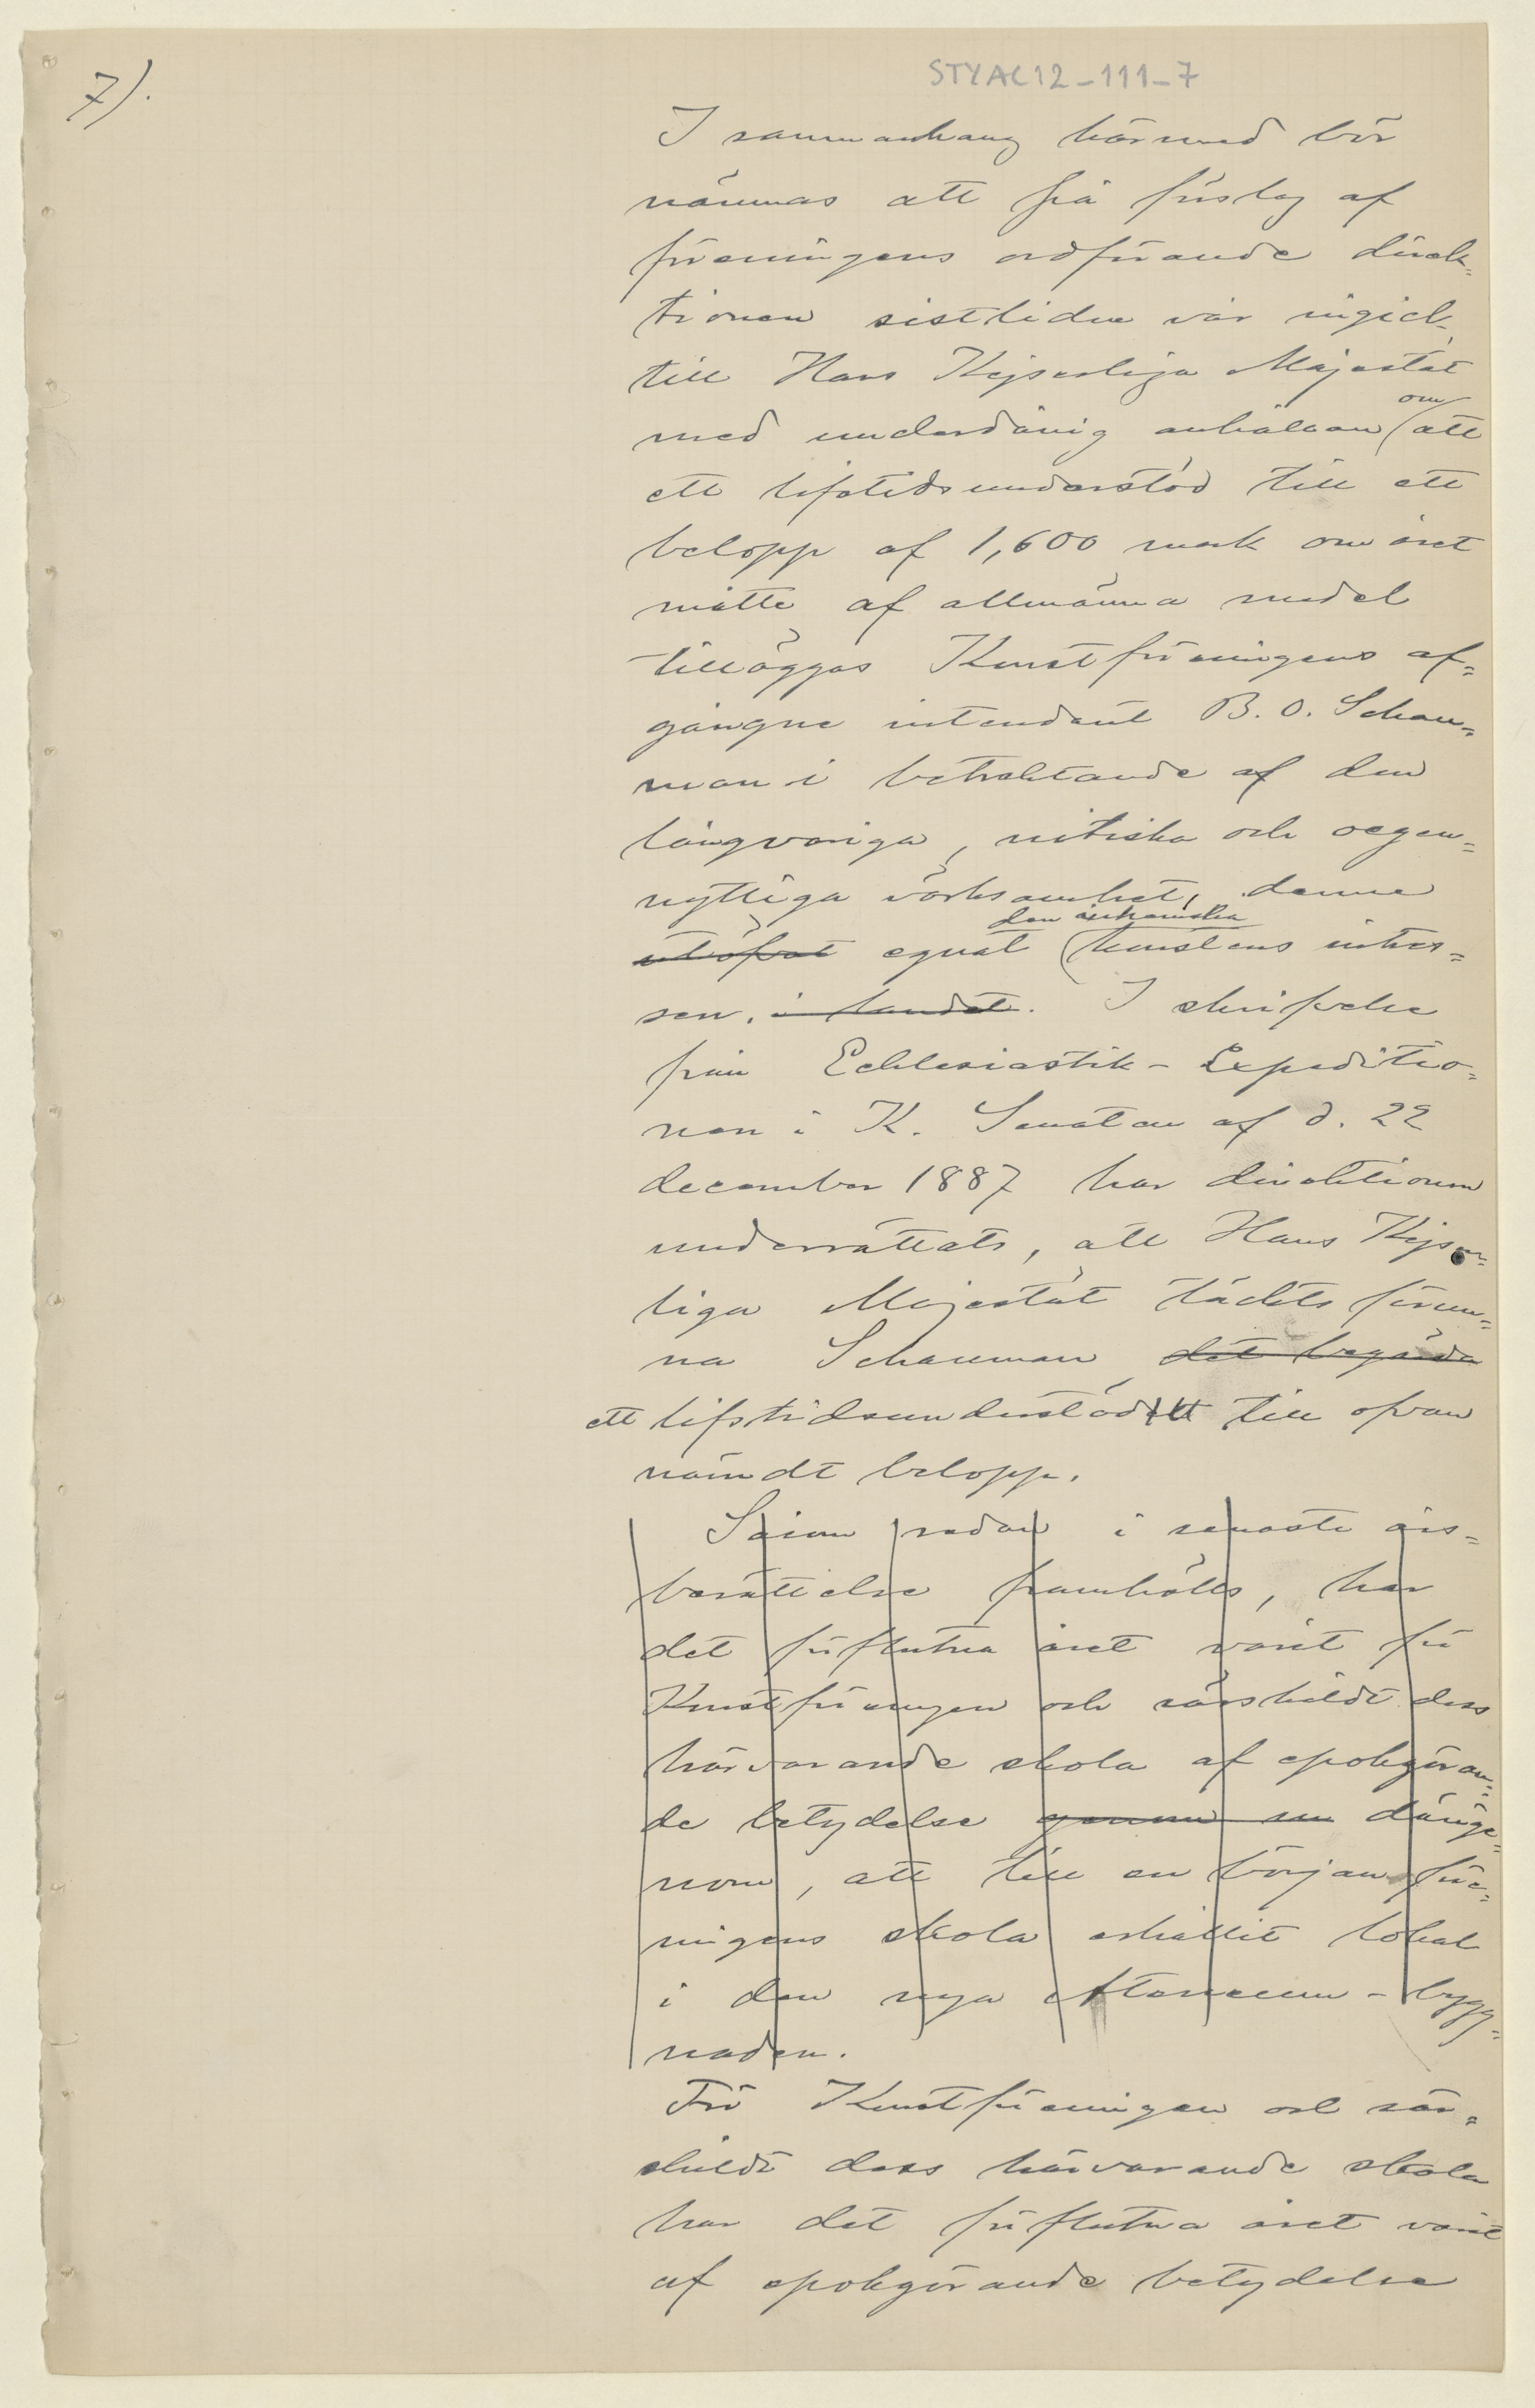 7).
STYAC12-111-7
I sammanhang härmed bör
nämnas att på förslag af
föreningens ordförande direk=
tionen sistliden vår ingick
till Hans Kejserliga Majestät
om
med underdånig anhållan att
ett lifstidsunderstöd till ett
belopp af 1,600 mark om året
måtte af allmänna medel
tilläggas Konstföreningens af=
gångne intendent B. O. Schau=
man i betraktande af den
långvariga, nitiska och oegen=
nyttiga värksamhet, denne
den inhemska
utöfvat egnat konstens intres=
sen. i landet. I skrifvelse
från Ecklesiastik-Expeditio=
nen i K. Senaten af d. 22
december 1887 har direktionen
underrättats, att Hans Kejser=
liga Majestät täckts förun=
na Schauman det begärda
ett lifstidsunderstödet till ofvan
nämdt belopp.
Såsom redan i senaste års=
berättelse framhölls, har
det förflutna året varit för
Konstföreningen och särskildt dess
härvarande skola af epokgöran=
de betydelse genom sin därige=
nom, att till en början före=
ningens skola erhållit lokal
i den nya Ateneum-bygg=
naden.
För Konstföreningen och sär=
skildt dess härvarande skola
har det förflutna året varit
af epokgörande betydelse